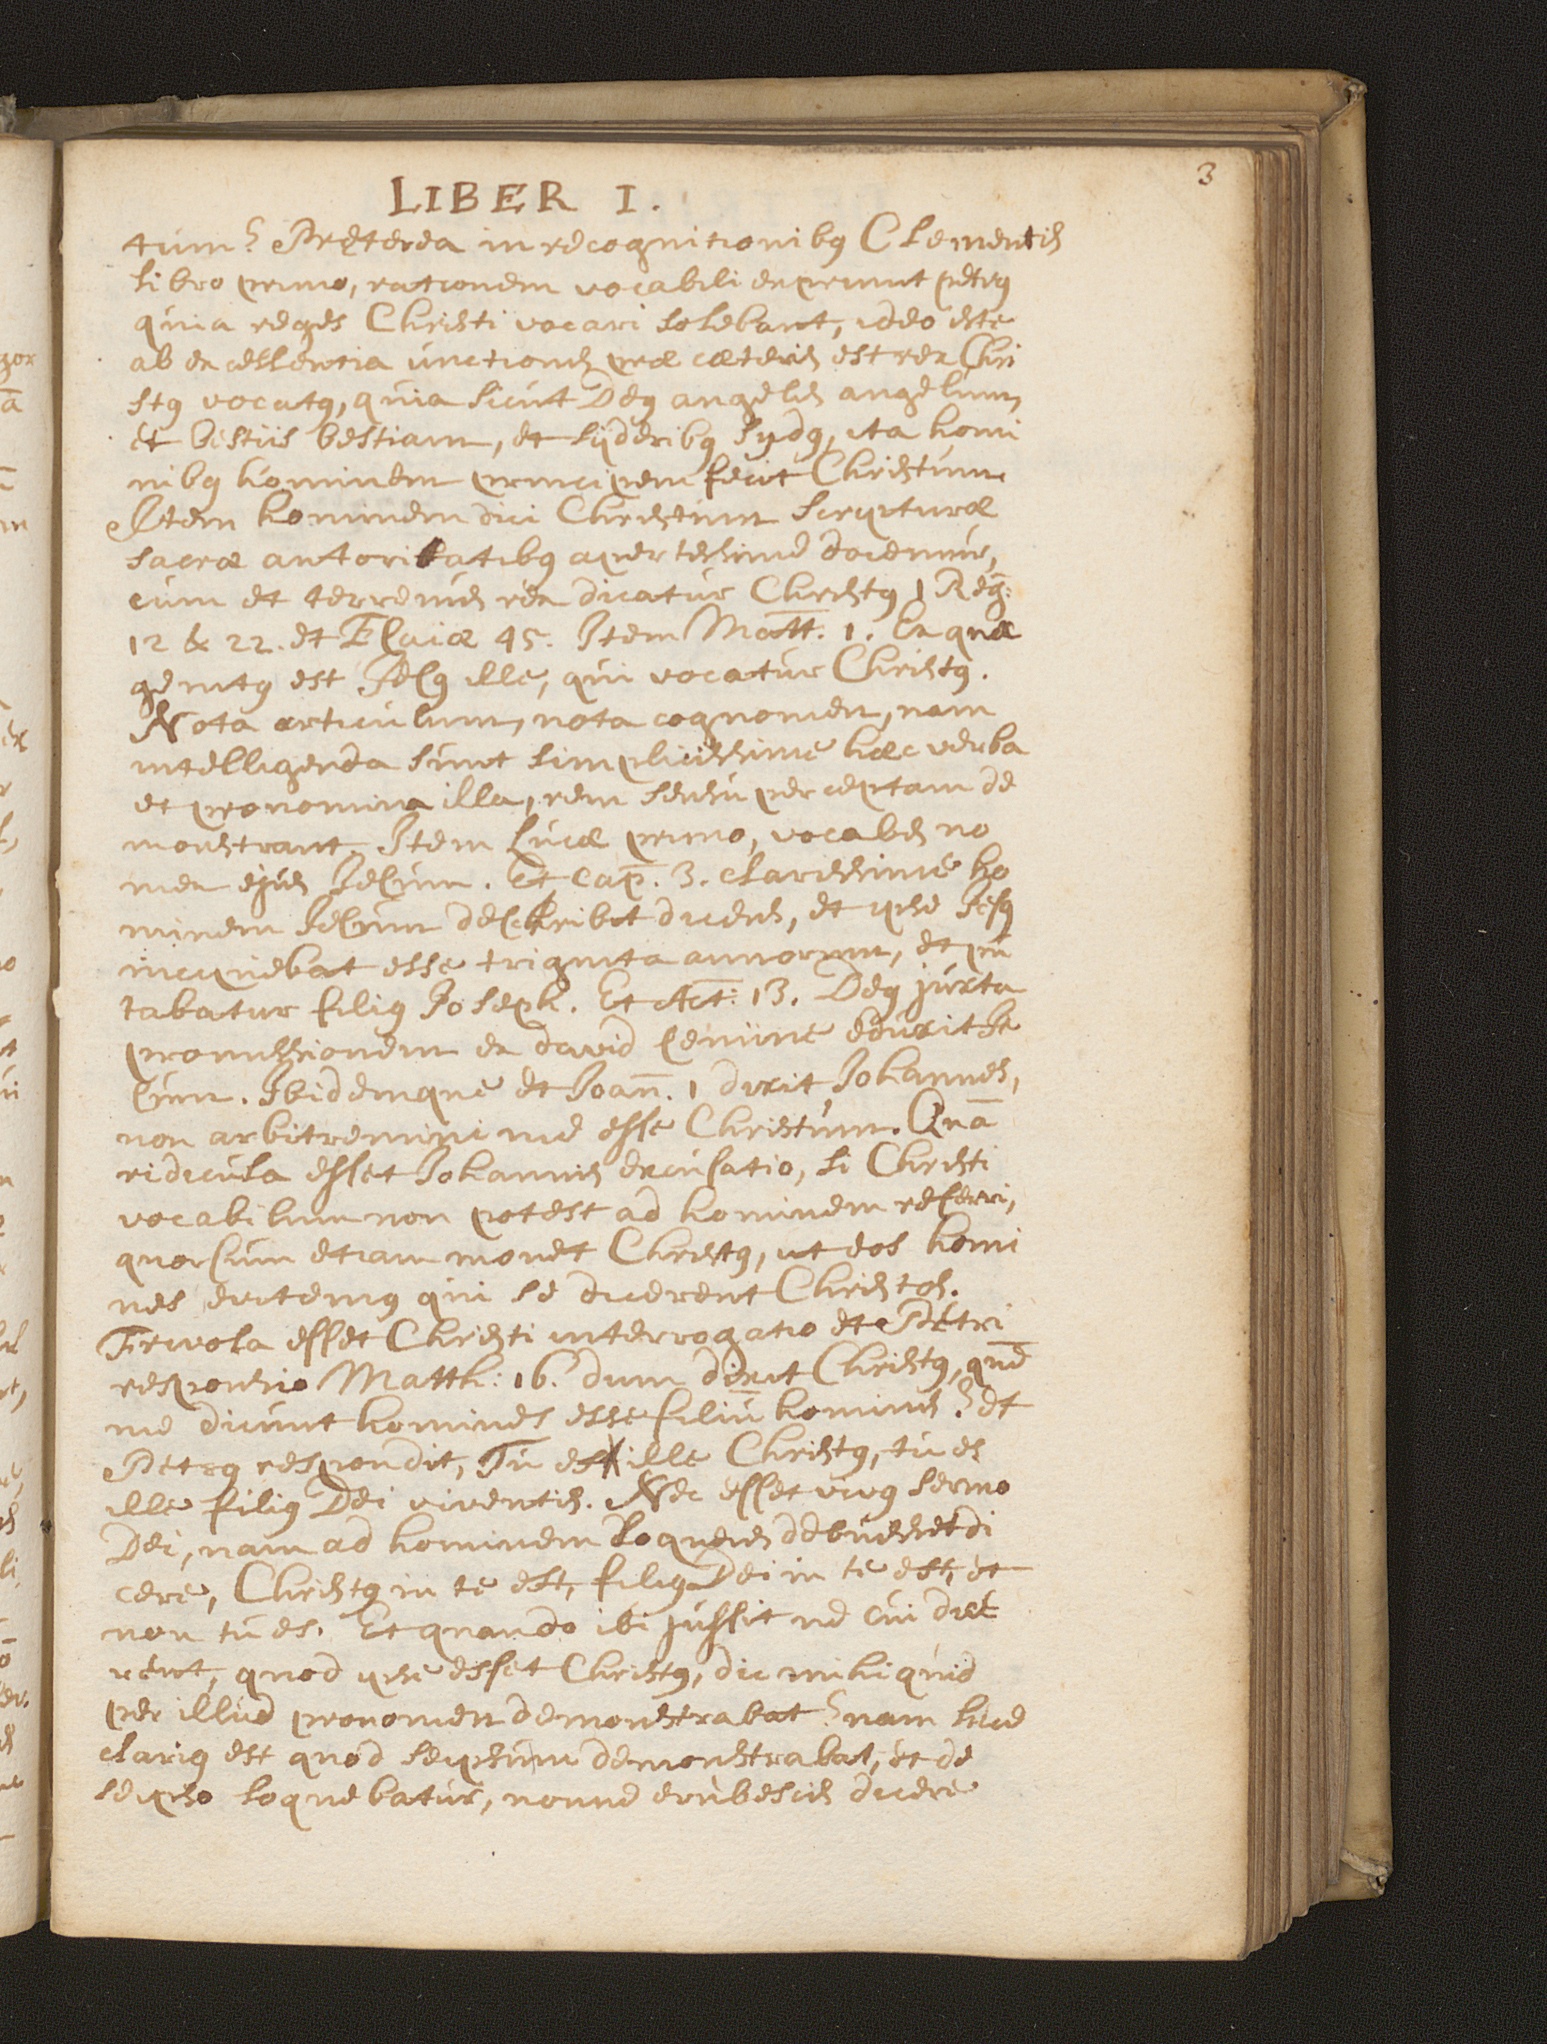 3
LIBER I.
tum? Pręterea in recognitionibꝯ Clementis
libro primo, rationem vocabuli exprimit petrꝯ
quia reges Christi vocari solebant, ideo iste
ab excellentia unctionis præ cæteris est rex Chri
stꝯ vocatꝯ, quia sicut Deꝯ angelis angelum,
et bestiis bestiam, et syderibꝯ sydꝯ, ita homi
nibꝯ hominem principem fecit Christum
Item hominem dici Christum scripturæ
sacræ autoritatibꝯ apertissime docemur,
cum et terrenus rex dicatur Christꝯ 1 Reg:
12 & 22. et Esaiæ 45. Item Matt. 1. Ex qua
genitꝯ est Jesꝯ ille, qui vocatur Christꝯ.
Nota articulum, nota cognomen, nam
intelligenda sunt simplicissime hæc verba
et pronomina illa, rem sensu perceptam de
monstrant. Item Lucæ primo, vocabis no
men ejus Jesum. Et Cap. 3. clarissime ho
minem Jesum describit dicens, et ipse Jesꝯ
incipiebat esse triginta annorum, et pu
tabatur filiꝯ Joseph. Et Act: 13. Deꝯ juxta
promissionem ex david semine eduxit Je
sum. Ibidemque et Joan̄. 1 dixit Johannes,
non arbitremini me esse Christum. Quā
ridicula esset Johannis excusatio, si Christi
vocabulum non potest ad hominem referri,
quorsum etiam monet Christꝯ, ut eos homi
nes evitemꝯ qui se dicerent Christos.
Frivola esset Christi interrogatio et Petri
responsio Matth: 16. dum dixit Christꝯ, quē
me dicunt homines esse filiū hominis? et
Petrꝯ respondit, Tu es ille Christꝯ, tu es
ille filiꝯ Dei viventis. Nec esset vivꝯ sermo
Dei, nam ad hominem loquens debuisset di
cere, Christꝯ in te est, filiꝯ Dei in te est, et
non tu es. Et quando ibi jussit ne cui dice
rent, quod ipse esset Christꝯ, dic mihi quid
per illud pronomen demonstrabat? nam luce
clariꝯ est quod seipsum demonstrabat, et de
seipso loquebatur, nonne erubescis dicere